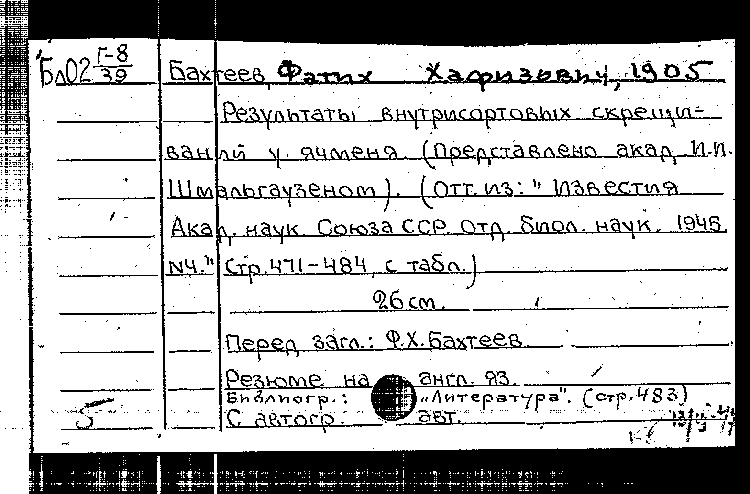 Бл02 Г-8/39
Бахтеев, Фатих Хафизович, 1905
Результаты внутрисортовых скрещи-
ваний у ячменя. (Представлено акад. И.И.
Шмальгаузеном). (Отт. из: "Известия
Акад. наук Союза ССР. Отд. биол. наук. 1945
№4." Стр. 471-484, с табл.)
26 см.
Перед загл.: Ф.Х. Бахтеев
Резюме на англ. яз.
Библиогр.: "Литература". (стр. 483)
С автогр. авт.
5